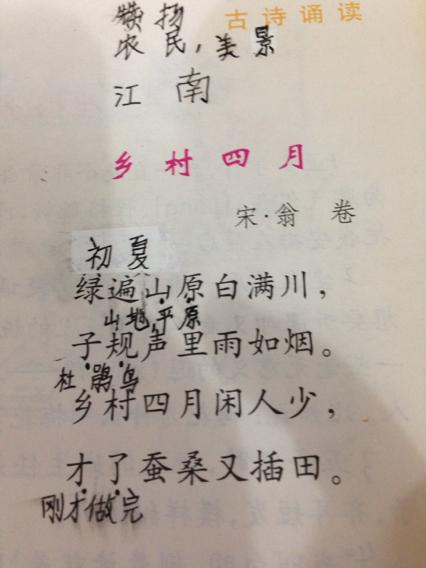 古诗诵读
赞扬
农民，美景
江南
乡村四月
宋·翁卷
初夏
绿遍山原白满川，
山地，平原
子规声里雨如烟。
杜鹃鸟
乡村四月闲人少，
才了蚕桑又插田。
刚才做完